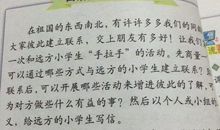 在祖国的东西南北，有许许多多我们的同
大家彼此建立联系，交上朋友有多好！让我们
一次和远方小学生“手拉手”的活动，先商量一
可以通过哪些方式与远方的小学生建立联系？
联系后，可以开展哪些活动来增进彼此的了解，
为对方做些什么有益的事？然后以个人或小组的
义，给远方的小学生写信。